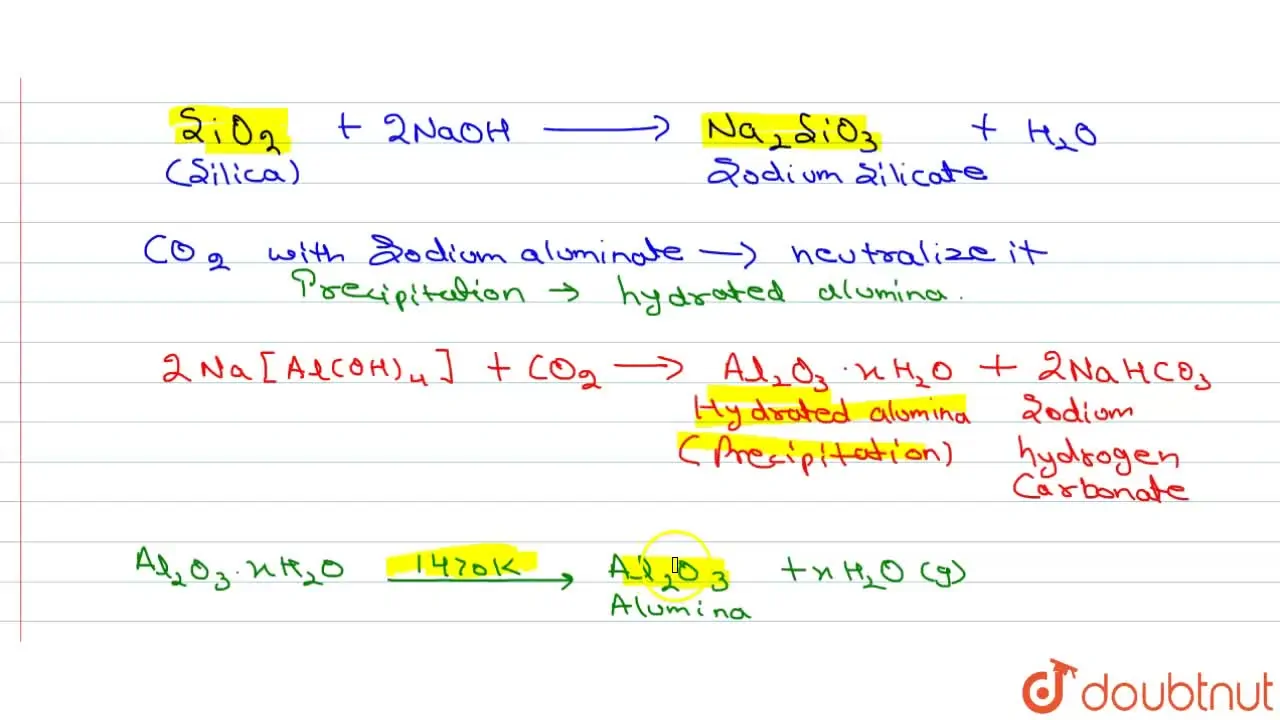 SiO2 + 2NaOH ⟶ Na2SiO3 + H2O
(Silica) Sodium Silicate
CO2 with Sodium aluminate → neutralize it
Precipitation → hydrated alumina.
2Na[Al(OH)4] + CO2 ⟶ Al2O3·xH2O + 2NaHCO3
Hydrated alumina Sodium
(Precipitation) hydrogen
Carbonate
Al2O3·xH2O 1470K ⟶ Al2O3 + xH2O (g)
Alumina
doubtnut